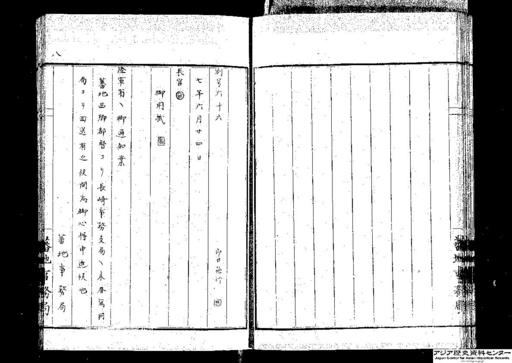 別号六十六
七年六月廿四日
長官
御用箋
陸軍省ヘ御通知案
蕃地西郷都督ヨリ長崎事務支局ヘ来春
局ヨリ回送有之候間為御心得申進候也
蕃地事務局
蕃地事務局
アジア歴史資料センター
Japan Center for Asian Historical Records